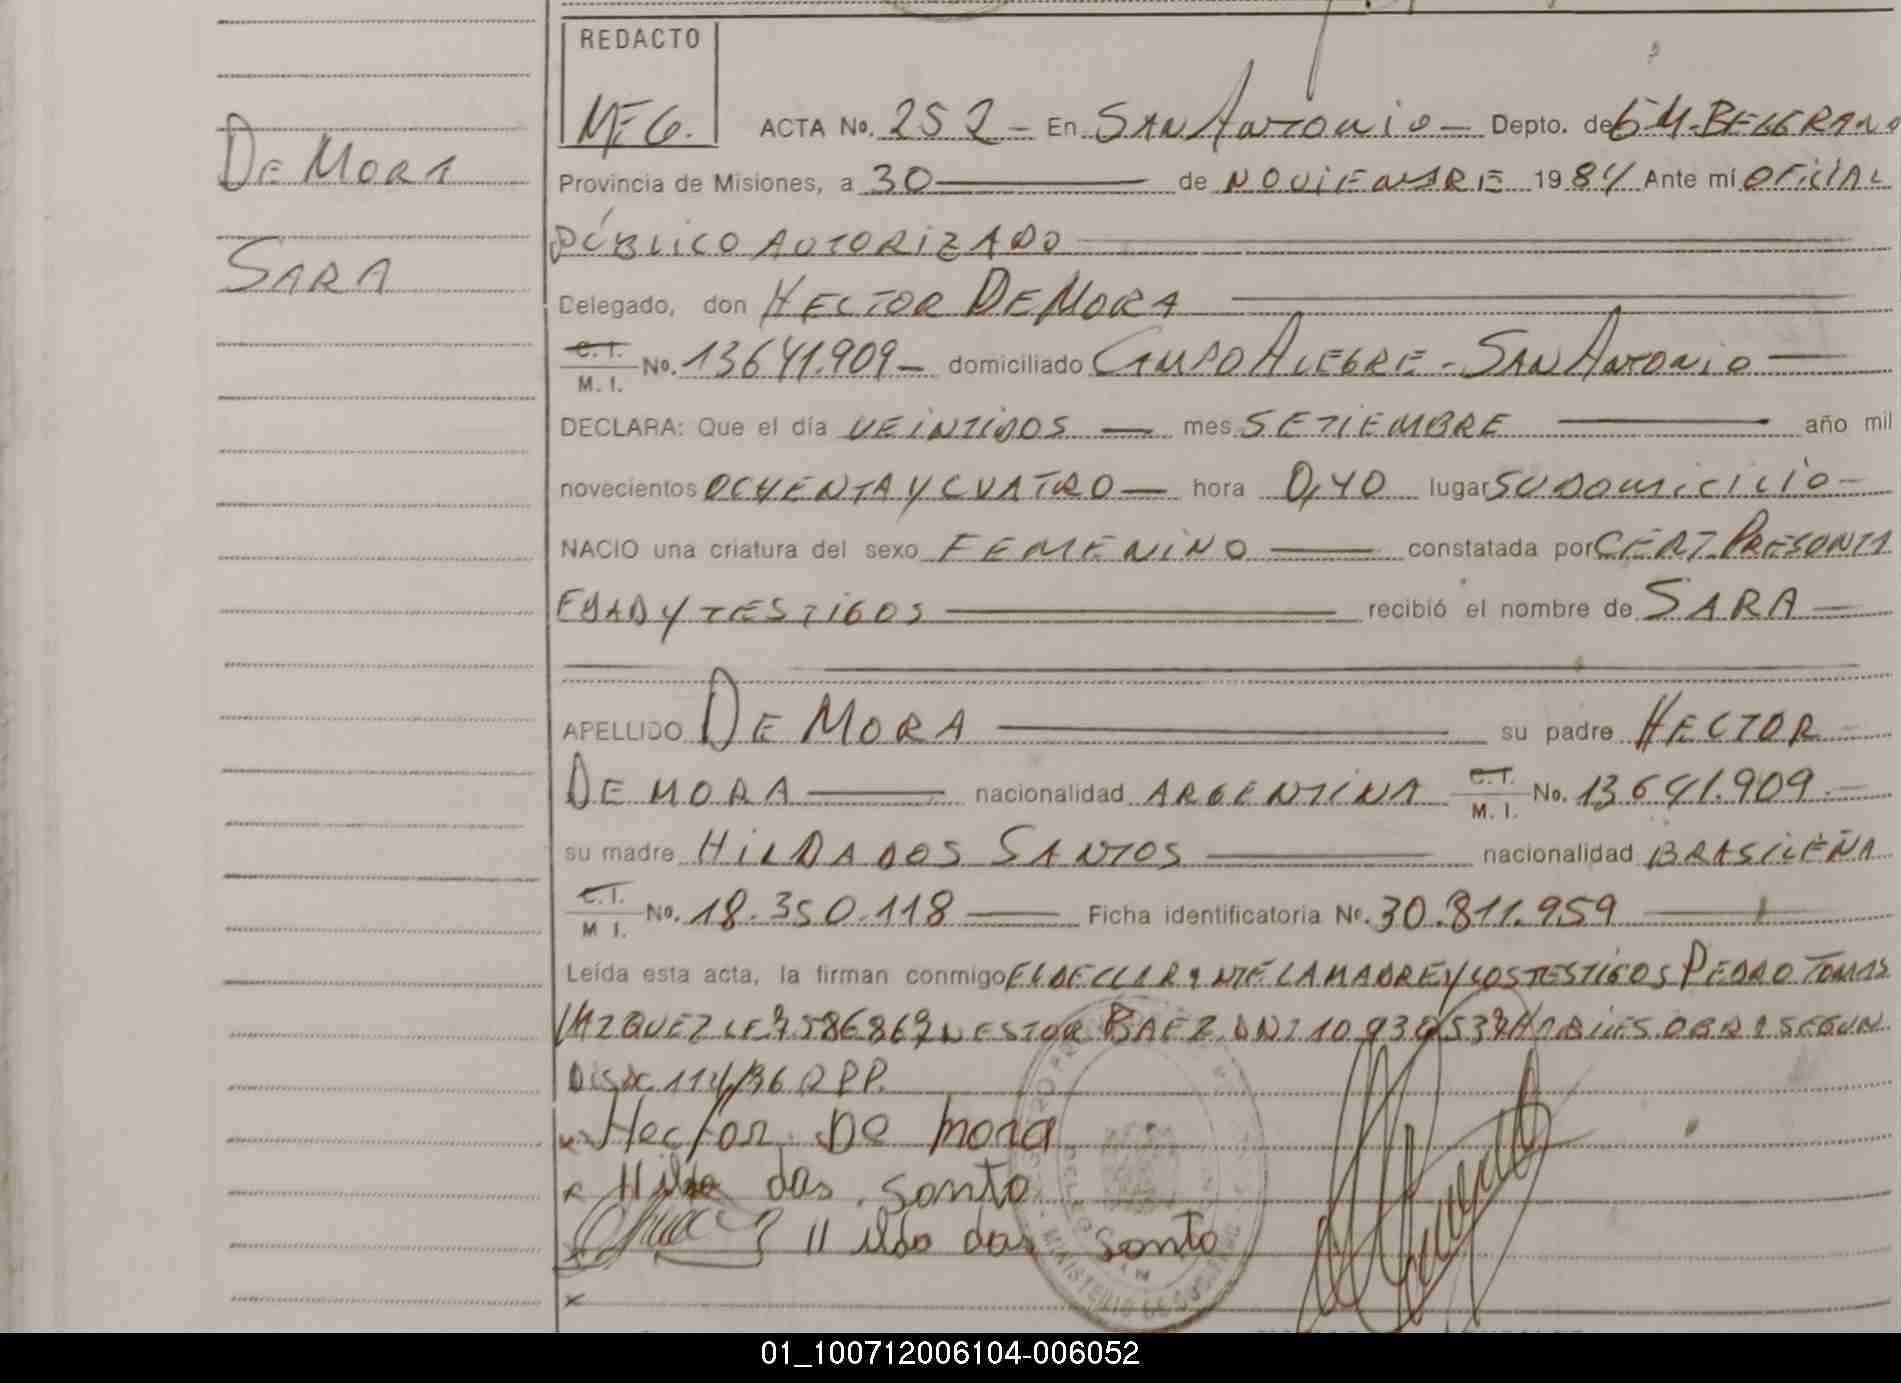 REDACTO
M.E.G.
ACTA No. 252 - En SAN ANTONIO - Depto. de G M. BELGRANO
DE MORA
Provincia de Misiones, a 30 de NOVIEMBRE 1984 Ante mi OFICIAL
PÚBLICO AUTORIZADO
SARA
Delegado, don HECTOR DE MORA
C. I. / M. I. No. 13641.909 - domiciliado CAMPO ALEGRE - SAN ANTONIO
DECLARA: Que el día VEINTIDOS mes SETIEMBRE año mil
novecientos OCHENTA Y CUATRO hora 0,40 lugar SU DOMICILIO
NACIO una criatura del sexo FEMENINO constatada por CERT. PRESONTA
EDAD Y TESTIGOS recibió el nombre de SARA
APELLIDO DE MORA su padre HECTOR
DE MORA nacionalidad ARGENTINA C. I. / M. I. No. 13641.909
su madre HILDA DOS SANTOS nacionalidad BRASILEÑA
C. I. / M I. No. 18.350.118 Ficha identificatoria No. 30.811.959
Leída esta acta, la firman conmigo EL DECLARANTE LA MADRE Y LOS TESTIGOS PEDRO TOMAS
LE 7586867 NESTOR BAEZ DNI HABILES OBRA SEGUN
114/36 RPP.
x Hector De mora
x Hilda das santo
Hilda das santo
x
01_100712006104-006052